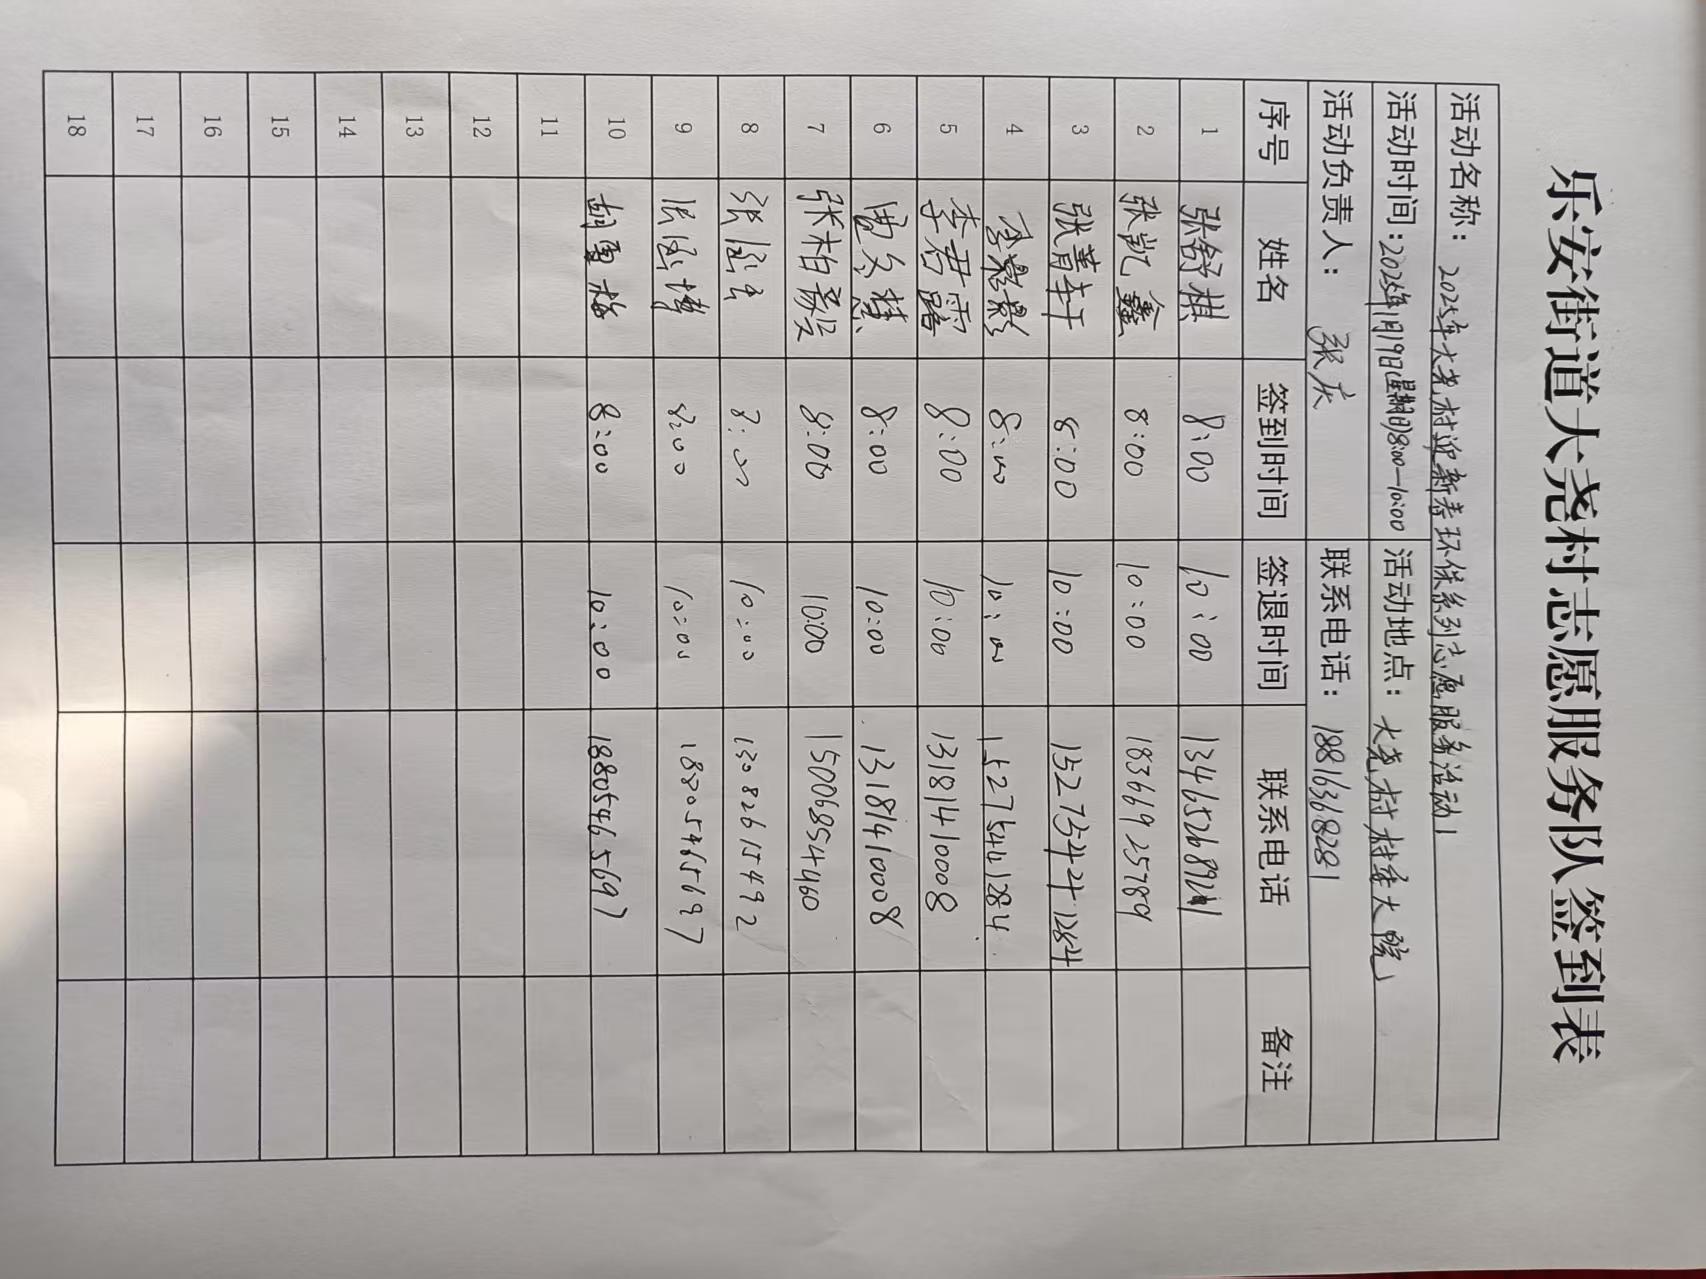 乐安街道大尧村志愿服务队签到表
活动名称：2025年大尧村迎新春环保系列志愿服务活动1
活动时间：2025年1月19日(星期日)8:00-10:00 活动地点：大尧村村委大院
活动负责人：张庆 联系电话：18816368281
序号 姓名 签到时间 签退时间 联系电话 备注
1 张舒棋 8:00 10:00
2 张凯鑫 8:00 10:00 18366925789
3 张菁轩 8:00 10:00 15275441284
4 李 影 8:00 10:00 15275441284
5 李君露 8:00 10:00 13181410008
6 8:00 10:00 13181410008
7 张柏 8:00 10:00 15006854460
8 张 8:00 10:00 13082615492
9 张 博 8:00 10:00 18805465697
10 胡雪梅 8:00 10:00 18805465697
11
12
13
14
15
16
17
18